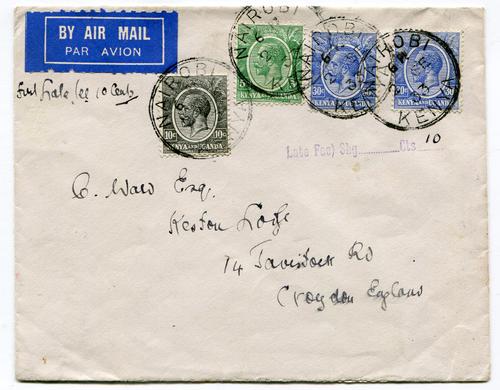 BY AIR MAIL
PAR AVION
late fee 10 Cents
NAIROBI
KENYA AND UGANDA
NAIROBI
10c 10c
KENYA AND UGANDA
NAIROBI
30c
KENYA AND UGANDA
NAIROBI
KENYA AND UGANDA
Late Fee) Shg.............Cts 10
Ward Esq.
Keston Lodge
74 Tavistock Rd
Croydon England